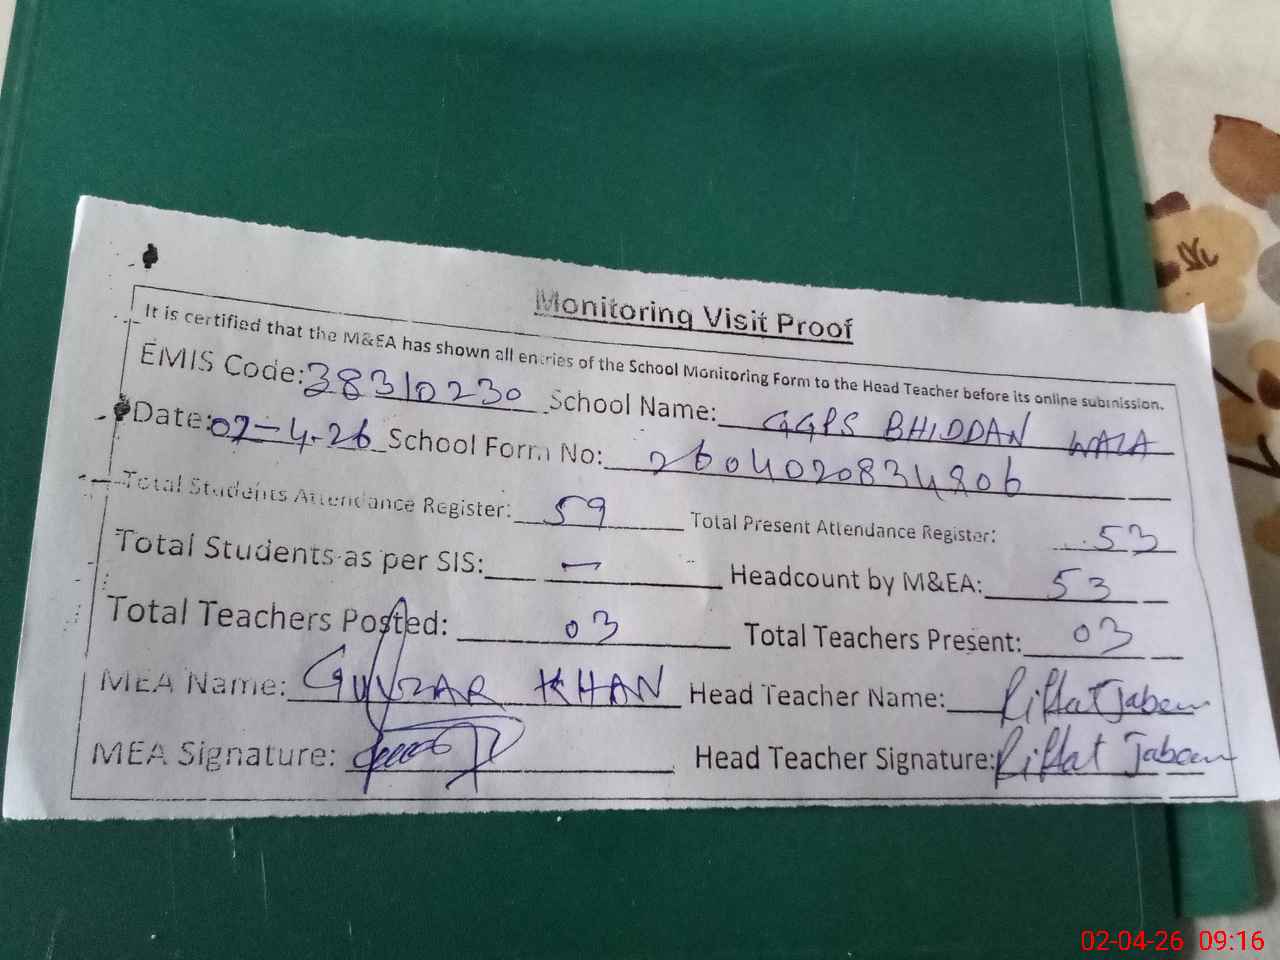 Monitoring Visit Proof
It is certified that the M&EA has shown all entries of the School Monitoring Form to the Head Teacher before its online submission.
EMIS Code: 38310230 School Name: GGPS BHIDDAN WALA
Date: 02-4-26 School Form No: 2604020834806
Total Students Attendance Register: 59 Total Present Attendance Register: 53
Total Students as per SIS: — Headcount by M&EA: 53
Total Teachers Posted: 03 Total Teachers Present: 03
MEA Name: GULZAR KHAN Head Teacher Name: Riffat Jabeen
MEA Signature: Head Teacher Signature: Riffat Jabeen
02-04-26 09:16